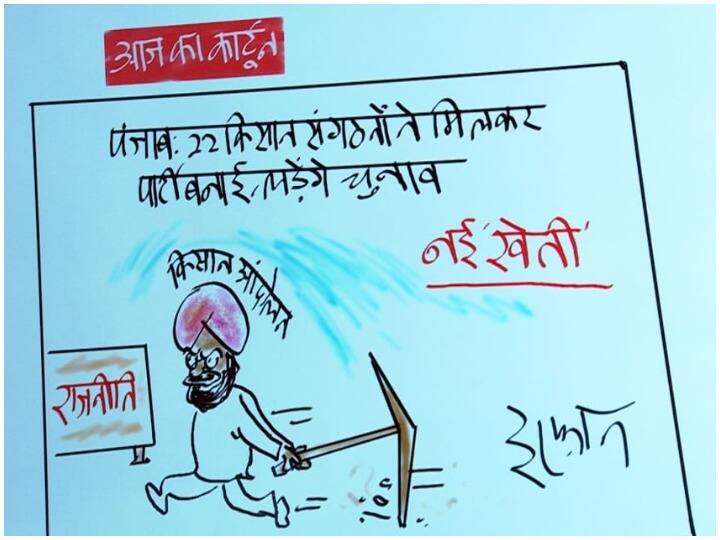 आज का कार्टून
पंजाब: 22 किसान संगठनों ने मिलकर
पार्टी बनाई, लड़ेंगे चुनाव
नई 'खेती'
किसान आंदोलन
राजनीति
इरफ़ान